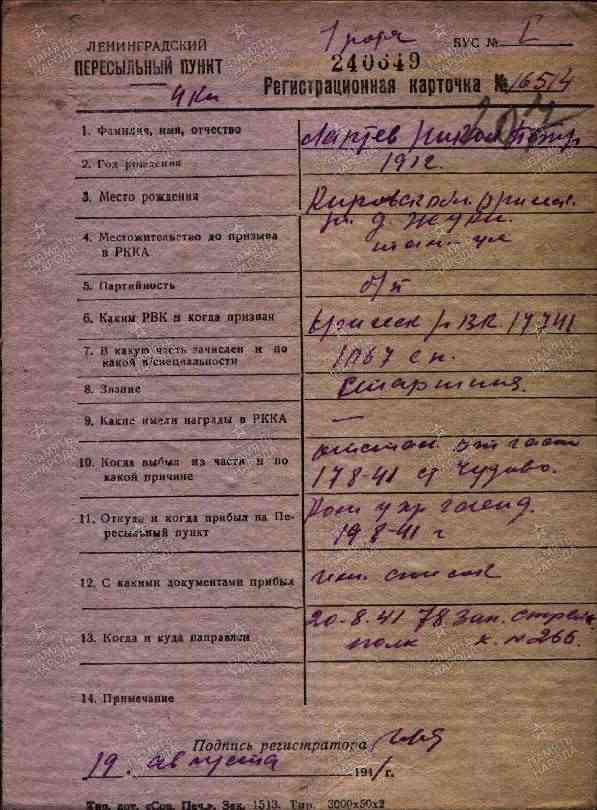 ЛЕНИНГРАДСКИЙ
ПЕРЕСЫЛЬНЫЙ ПУНКТ
1 рота
БУС № I
240649
Регистрационная карточка № 16514
1. Фамилия, имя, отчество
2. Год рождения 1912.
3. Место рождения Кировской обл.
д. Жуки.
4. Местожительство до призыва
в РККА
5. Партийность б/п
6. Каким РВК и когда призван РВК 17.7.41
7. В какую часть зачислен и по
какой в/специальности 1067 с п.
8. Звание Старшина.
9. Какие имели награды в РККА —
10. Когда выбыл из части и по
какой причине отстал от части
17 8-41 ст Чудово.
11. Откуда и когда прибыл на Пе-
ресыльный пункт
19 8-41 г
12. С какими документами прибыл список
13. Когда и куда направлен 20-8.41 78 Зап. стрелк
полк к. № 266.
14. Примечание
Подпись регистратора
19. августа 1941 г.
Тип. арт. «Сов. Печ.». Зак. 1513. Тир. 3000х50х2
ПАМЯТЬ НАРОДА